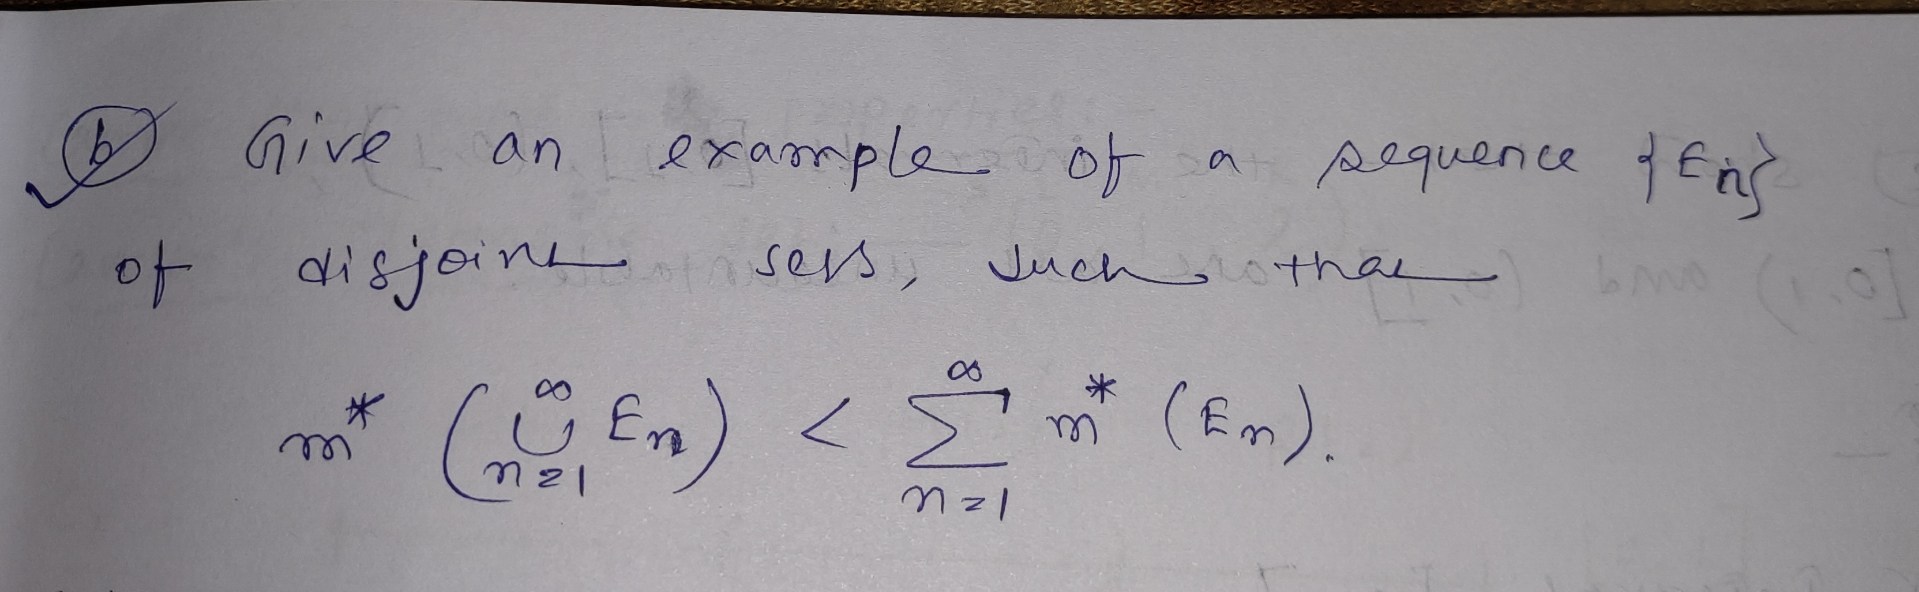 (b) Give an example of a sequence {En}
of disjoint sets, such that
m* (∪_{n=1}^{∞} En) < ∑_{n=1}^{∞} m* (En).